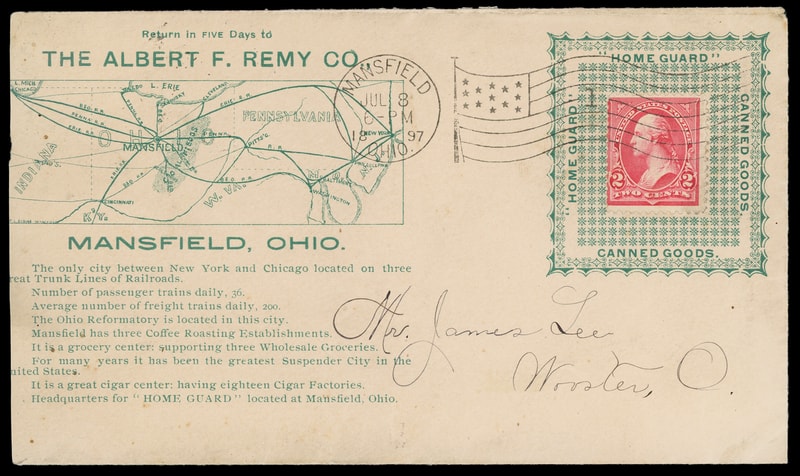 Return in FIVE Days to
THE ALBERT F. REMY CO
L. MICH
CHICAGO
L. ERIE
CLEVELAND
PENNSYLVANIA
OHIO
MANSFIELD
INDIANA
PITTS'G
NEW YORK
W. VA.
BALTIMORE
WASHINGTON
CINCINNATI
KY.
MANSFIELD
JUL 8
6-PM
18 97
OHIO.
H
"HOME GUARD"
"HOME GUARD"
CANNED GOODS.
CANNED GOODS.
UNITED STATES POSTAGE
2 2
TWO CENTS
MANSFIELD, OHIO.
The only city between New York and Chicago located on three
reat Trunk Lines of Railroads.
Number of passenger trains daily, 36.
Average number of freight trains daily, 200.
The Ohio Reformatory is located in this city.
Mansfield has three Coffee Roasting Establishments.
It is a grocery center: supporting three Wholesale Groceries.
For many years it has been the greatest Suspender City in the
nited States.
It is a great cigar center: having eighteen Cigar Factories.
Headquarters for "HOME GUARD" located at Mansfield, Ohio.
Mr. James Lee
Wooster, O.